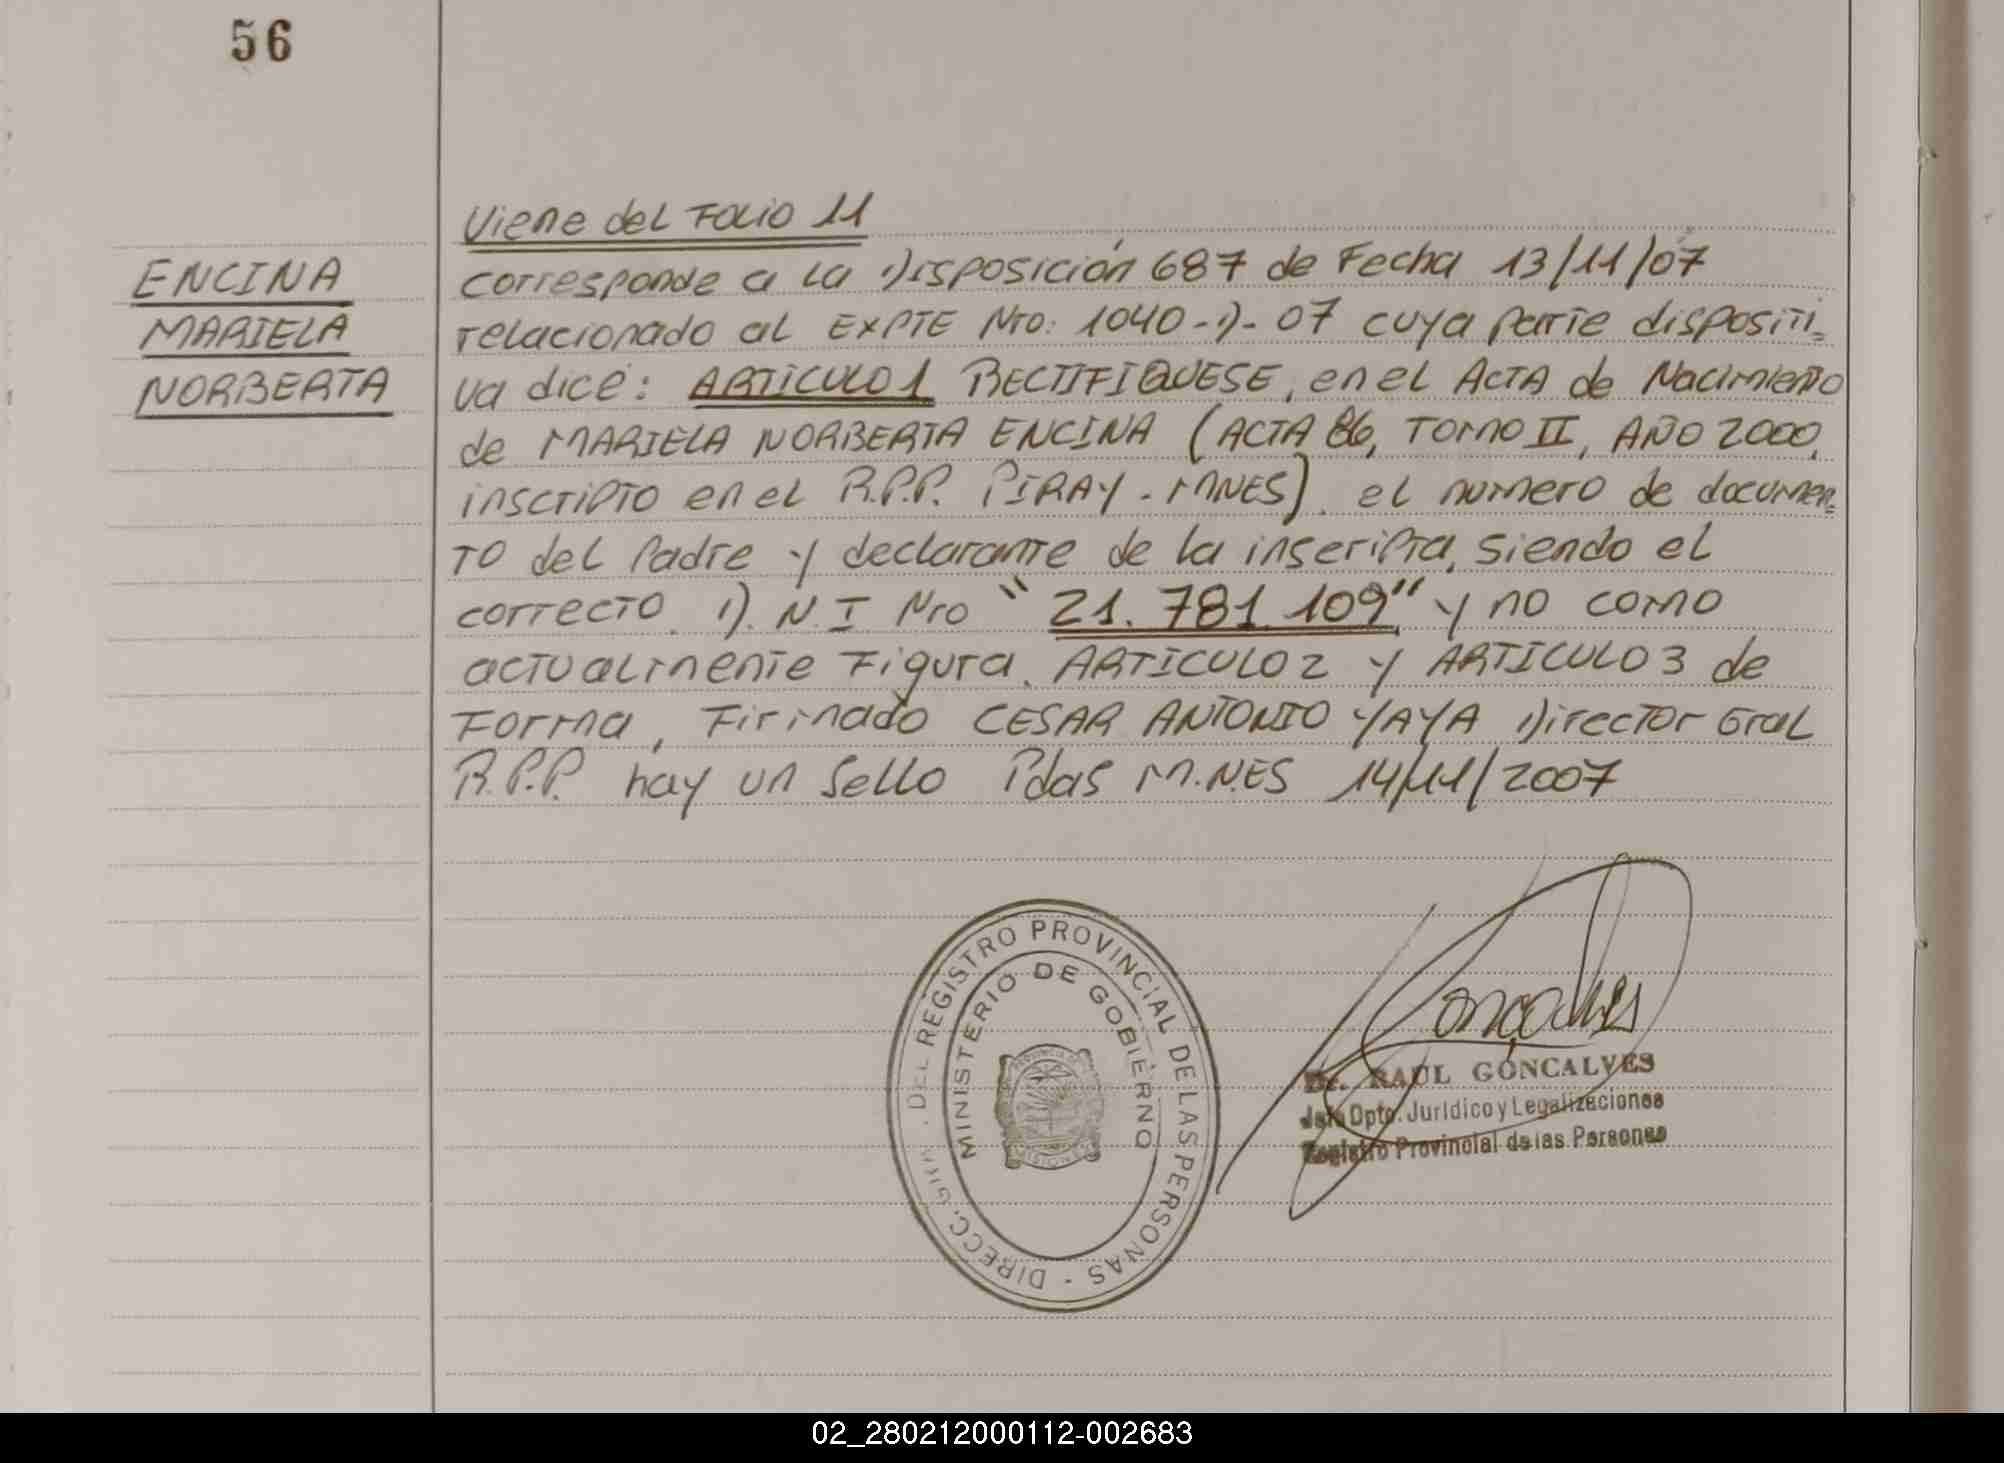 56
Viene del Folio 11
ENCINA
MARIELA
NORBERTA
corresponde a la Disposición 687 de Fecha 13/11/07
relacionado al EXPTE Nro: 1040-D-07 cuya parte dispositi=
va dice: ARTICULO 1 RECTIFIQUESE, en el ACTA de Nacimiento
de MARIELA NORBERTA ENCINA (ACTA 86, TOMO II, AÑO 2000,
inscripto en el R.P.P. PIRAY - MNES). el numero de documen=
to del Padre y declarante de la inscripta, siendo el
correcto. D.N.I Nro "21.781.109" y no como
actualmente Figura. ARTICULO 2 y ARTICULO 3 de
Forma, Firmado CESAR ANTONIO YAYA Director Gral
R.P.P. hay un Sello Pdas M.NES 14/11/2007
DIRECC. GRAL. DEL REGISTRO PROVINCIAL DE LAS PERSONAS -
MINISTERIO DE GOBIERNO
PROVINCIA DE
MISIONES
Goncalves
Dr. RAUL GONCALVES
Jefe Dpto. Jurídico y Legalizaciones
Registro Provincial de las Personas
02_280212000112-002683